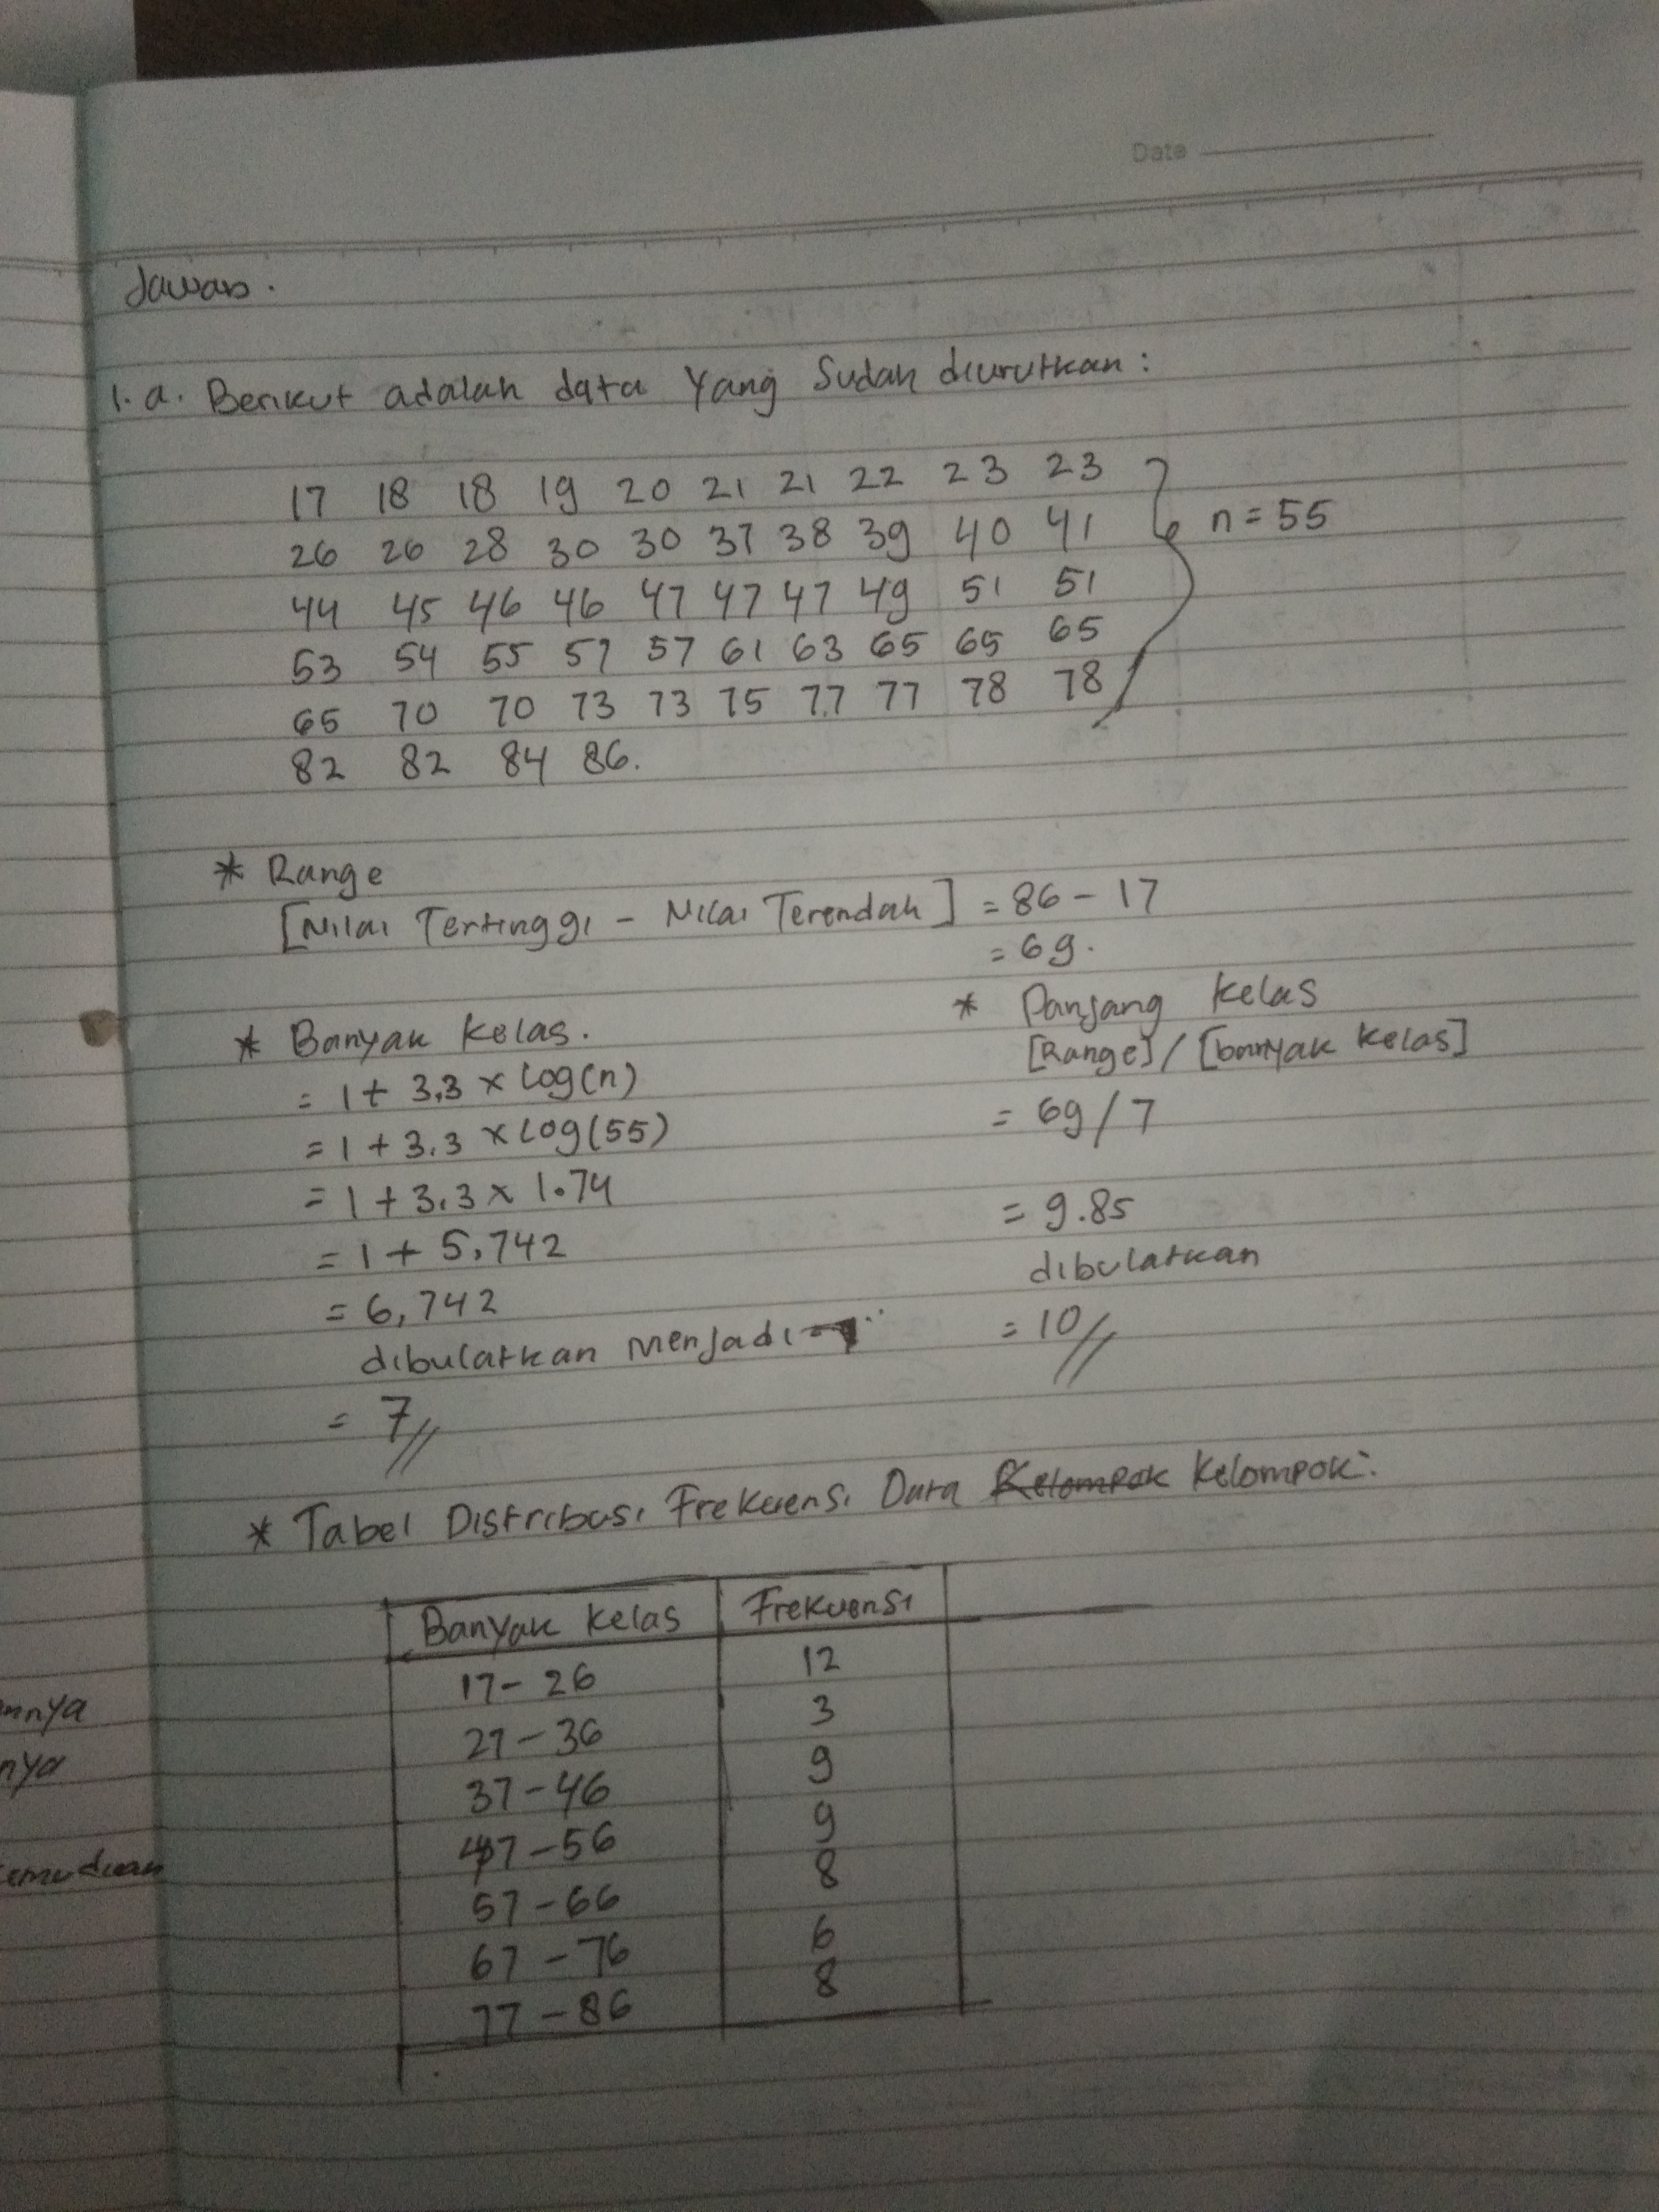 Date
Jawab.
1. a. Berikut adalah data yang sudah diurutkan:
17 18 18 19 20 21 21 22 23 23
26 26 28 30 30 37 38 39 40 41 n = 55
44 45 46 46 47 47 47 49 51 51
53 54 55 57 57 61 63 65 65 65
65 70 70 73 73 75 77 77 78 78
82 82 84 86.
* Range
[Nilai Tertinggi - Nilai Terendah] = 86 - 17
= 69.
* Banyak Kelas.
= 1 + 3,3 x Log(n)
= 1 + 3,3 x Log(55)
= 1 + 3,3 x 1.74
= 1 + 5,742
= 6,742
dibulatkan menjadi
= 7//
* Panjang Kelas
[Range] / [banyak kelas]
= 69 / 7
= 9.85
dibulatkan
= 10//
* Tabel Distribusi Frekuensi Data Kelompok Kelompok:
Banyak Kelas Frekuensi
17 - 26 12
27 - 36 3
37 - 46 9
47 - 56 9
57 - 66 8
67 - 76 6
77 - 86 8
nya